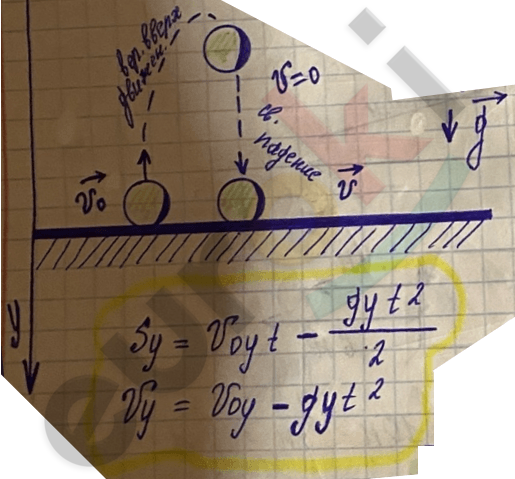 вер. вверх
движен.
v=0
св.
падение
g
v₀
v
y
Sy = v₀y t - gy t² / 2
vy = v₀y - gy t²